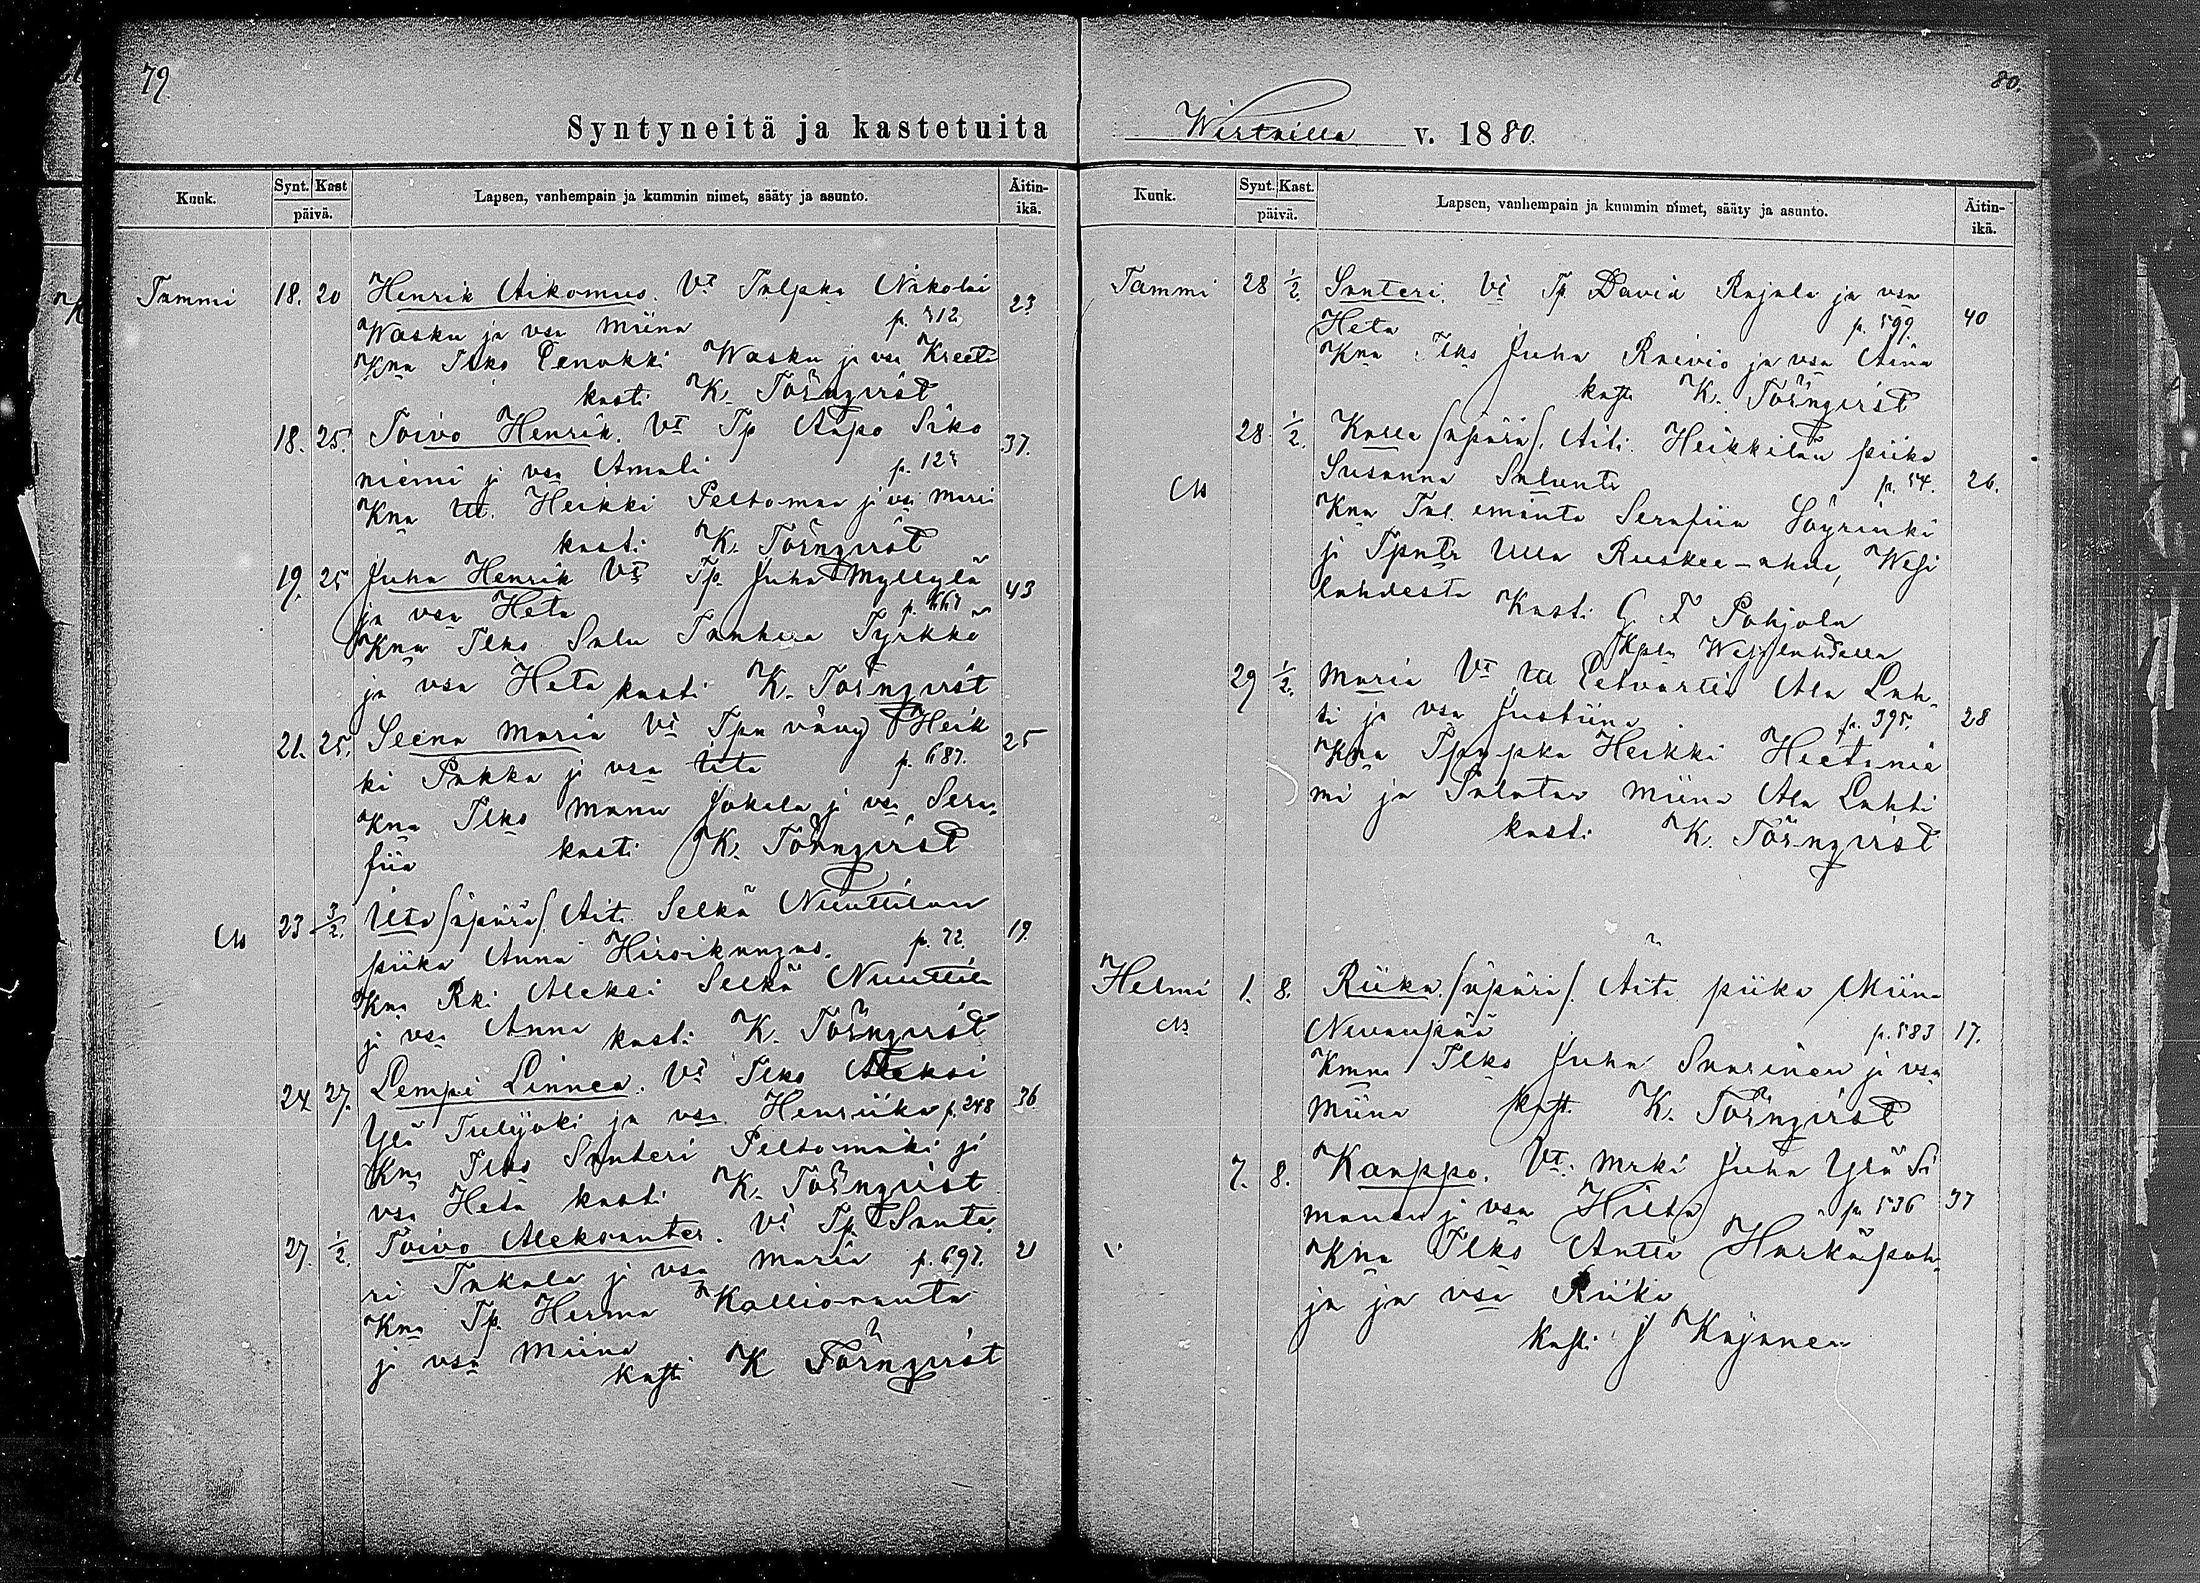 79
Syntyneitä ja kastetuita
Kuuk. Synt. Kast päivä. Lapsen, vanhempain ja kummin nimet, sääty ja asunto. Äitin-ikä.
Tammi 18. 20 Henrik Aikomus. Vt Talpka Nikolai 23
Wasku ja vsa Miina p. 312
Kna Tlko Eenokki Wasku ja vsa Kreeta
kasti K. Törnqvist
18. 25. Toivo Henrik. Vt Tp Aapo Siko 37.
niemi ja vsa Amali
Kna Itl. Heikki Peltomaa ja vsa Mari
kasti K. Törnqvist
19. 25 Juha Henrik Vt Tp. Juha Myllylä 43
ja vsa Heta p. 667
Kna Tlko Salu Tanhua Tyrkkö
ja vsa Heta kasti K. Törnqvist
21. 25. Seena Maria Vt Tpn vävy Heik 25
ki Pukka ja vsa Iita p. 687.
Kna Tlko Manu Jokela ja vsa Sera
fiia kasti K. Törnqvist
Au 23 3/2. Uta /äpärä/. Äiti Selkä Nuuttilan 19.
piika Anna Hirsikangas. p. 72.
Kna Rki Aleksi Selkä Nuuttila
ja vsa Anna kasti K. Törnqvist
24 27. Lempi Linnea. Vt Tlko Aleksi 36
Ylä Tulijoki ja vsa Henriika p. 248
Kna Tlko Santeri Peltomäki ja
vsa Heta kasti K. Törnqvist
27. 1/2. Toivo Aleksanter. Vt Tp Sante 21
ri Takala ja vsa Maria p. 697.
Kna Tp. Herma Kallioranta
ja vsa Miina
kasti K Törnqvist
80.
Wirtailla v. 1880.
Kuuk. Synt. Kast. päivä. Lapsen, vanhempain ja kummin nimet, sääty ja asunto. Äitin-ikä.
Tammi 28 1/2. Santeri. Vt Tp David Rajala ja vsa
Heta p. 599. 40
Kna Tlko Juha Raivio ja vsa Aina
kasti K. Törnqvist
28 1/2. Kalle /äpärä/. Äiti. Heikkilän piika
Au Susanna Salunta p. 54. 26.
Kna Tal. emäntä Serafiia Löyrinki
ja Tpntr Ulla Ruskee-ahde, Wesi
lahdesta Kasti G F Pohjola
Kpln Wesilahdella
29 1/2. Maria Vt Itl Eetvartti Ala Lah-
ti ja vsa Justiina p. 395. 28
Kna Tpnpka Heikki Hietanie
mi ja Talotar Miina Ala Lahti
kasti K. Törnqvist
Helmi 1. 8. Riika. /äpärä/. Äiti piika Miina
Au Nevanpää p. 583 17.
Kmna Tlko Juha Saarinen ja vsa
Miina kasti K. Törnqvist
7. 8. Kauppo. Vt. Mrki Juha Ylä Si
manen ja vsa Hiita p. 536 37
Kna Tlko Antti Harkäpoh-
ja ja vsa Riika
Kasti J Kajanen